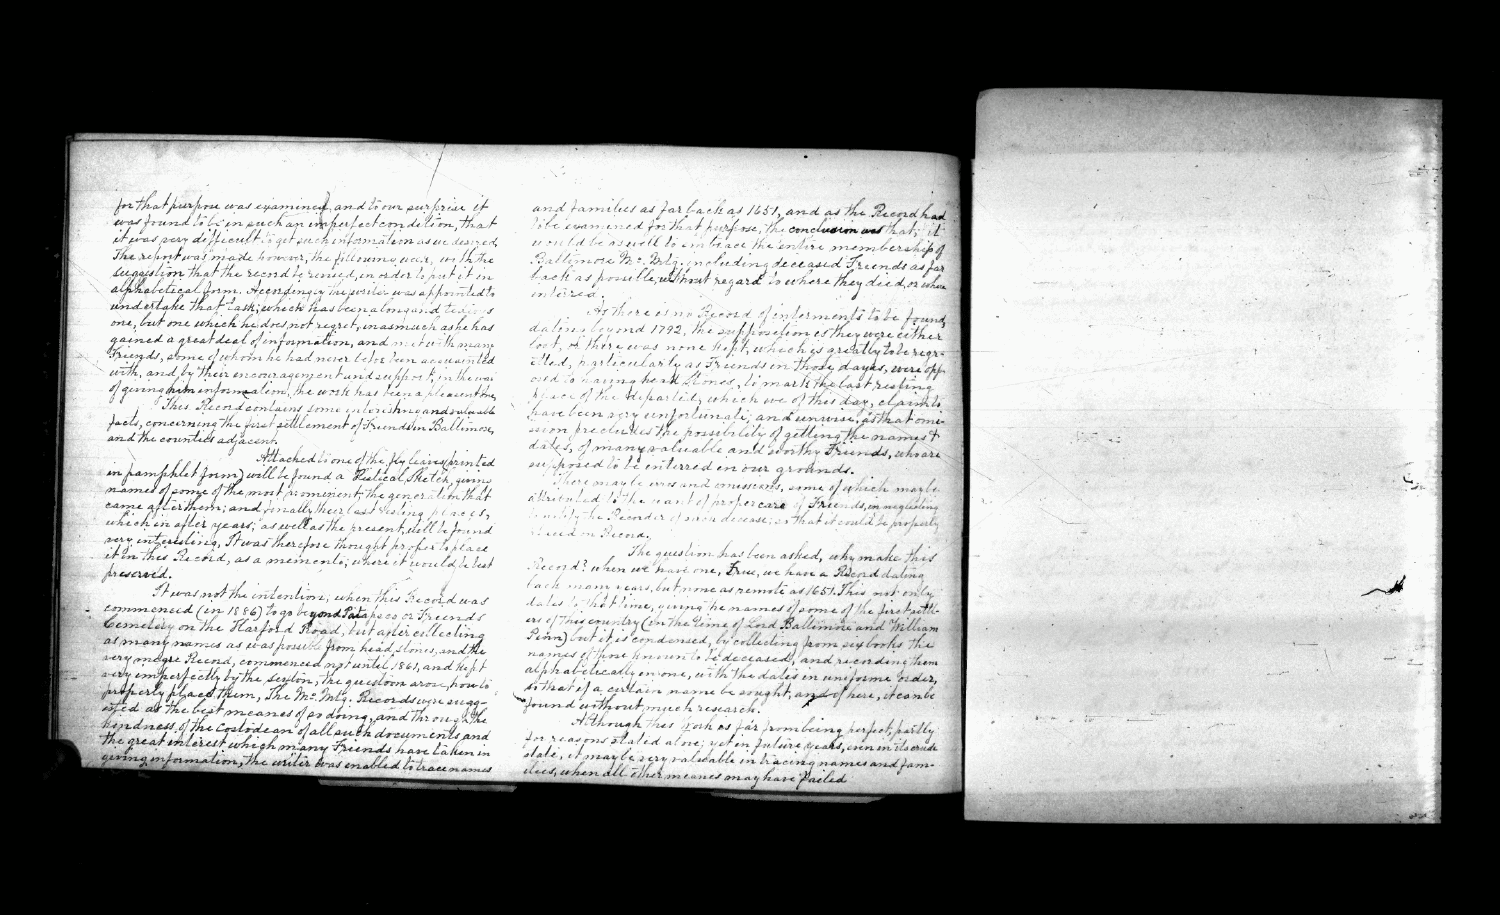 for that purpose was examined, and to our surprise it
was found to be in such an imperfect condition, that
it was very difficult to get such information as we desired.
The report was made however, the following year, with the
suggestion that the record be revised, in order to put it in
alphabetical form. Accordingly the writer was appointed to
undertake that task, which has been a long and tedious
one, but one which he does not regret, inasmuch as he has
gained a great deal of information, and met with many
Friends, some of whom he had never before been acquainted
with, and, by their encouragement and support, in the way
of giving him information, the work has been a pleasant one,
This Record contains some interesting and valuable
facts, concerning the first settlement of Friends in Baltimore,
and the counties adjacent.
Attached to one of the fly leaves (printed
in pamphlet form) will be found a Histical Sketch, giving
names of some of the most prominent, the generation that
came after them; and finally their last resting places,
which in after years; as well as the present, will be found
very interesting, It was therefore thought proper to place
it in this Record, as a memento; where it would be best
preserv'd.
It was not the intention, when this Record was
commenced (in 1886) to go beyond Patapsco or Friends
Cemetery on the Harford Road, but after collecting
as many names as was possible from head stones, and the
very meagre Record, commenced not until 1861, and kept
very imperfectly by the sexton, the question arose, how to
properly place them, The Mo. Mtg. Records were sugg-
ested as the best means of so doing, and through the
kindness of the Costodean of all such documents and
the great interest which many Friends have taken in
giving information, the writer was enabled to trace names
and families as far back as 1651, and as the Record had
to be examined for that purpose, the conclusion was that; it
would be as well to embrace the entire membership of
Baltimore Mo. Mtg. including deceased Friends as far
back as possible, without regard to where they died, or where
intered.
As there is no Record of interments to be found,
dating beyond 1792, the supposition is they were either
lost, or there was none kept, which is greatly to be regr-
etted, particularly as Friends in those days, were opp-
osed to having head Stones, to mark the last resting
place of the departed, which we of this day, claim to
have been very unfortunate, and unwise, as that omi-
ssion precludes the possibility of getting the names &
dates, of many valuable and worthy Friends, who are
supposed to be interred in our grounds.
There may be errors and omissions, some of which may be
attributed to the want of proper care of Friends, in neglecting
to notify the Recorder of such decease; so that it could be properly
placed on Record.
The question has been asked, why make this
Record? when we have one, True, we have a Record dating
back many years, but none as remote as 1651. This not only
dates to that time, giving the names of some of the first settl-
ers of this country (in the time of Lord Baltimore and William
Penn) but it is condensed, by collecting from six books the
names of those known to be deceased, and recording them
alphabetically in one, with the dates in uniforme order,
so that if a certain name be sought, and if here, it can be
found without much research.
Although this work is far from being perfect, partly
for reasons stated above, yet in future years, even in its crude
state, it may be very valuable in tracing names and fam-
ilies, when all other means may have failed